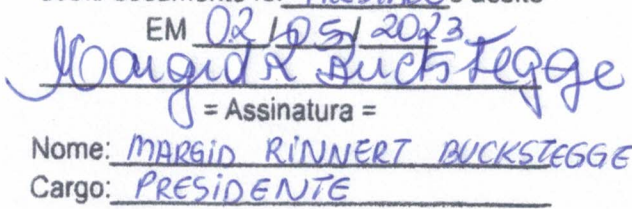 EM 02/05/2023
Margid R Buckstegge
= Assinatura =
Nome: MARGID RINNERT BUCKSTEGGE
Cargo: PRESIDENTE